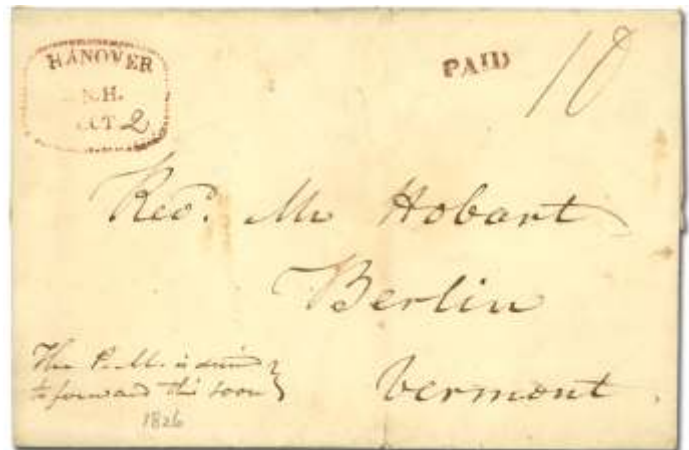 HANOVER
N.H.
OCT 2
PAID
10
Revd. Mr Hobart
Berlin
Vermont.
The P.M. is
to forward this soon
1826